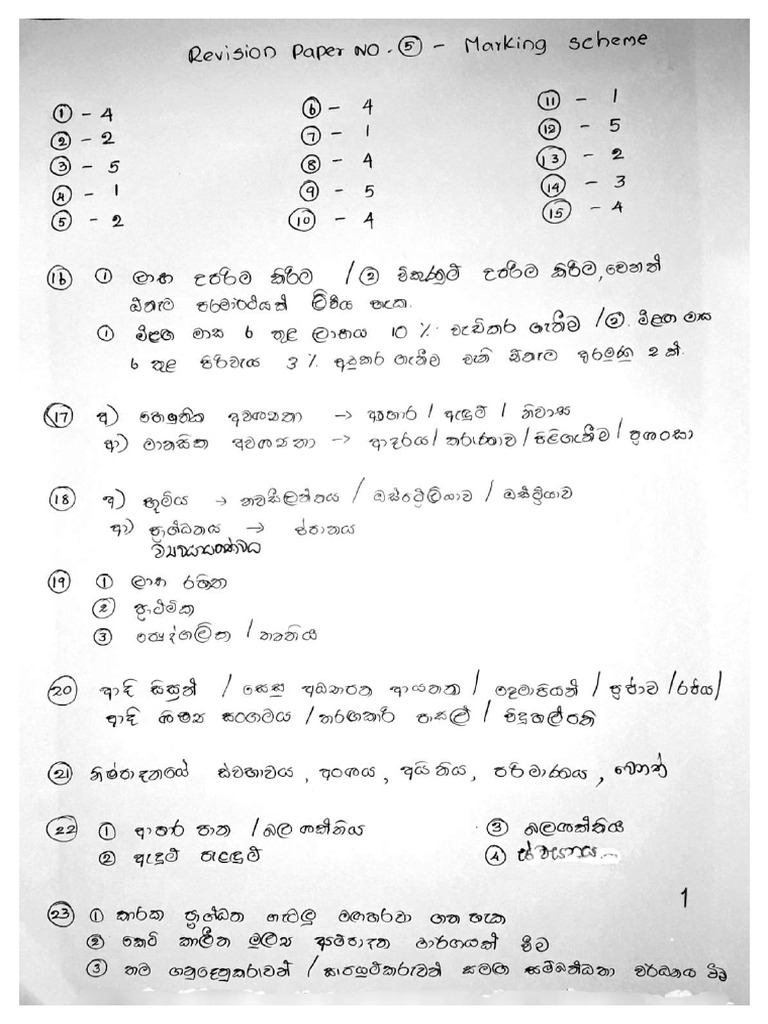 Revision Paper NO. ⑤ - Marking scheme
① - 4 ⑥ - 4 ⑪ - 1
② - 2 ⑦ - 1 ⑫ - 5
③ - 5 ⑧ - 4 ⑬ - 2
④ - 1 ⑨ - 5 ⑭ - 3
⑤ - 2 ⑩ - 4 ⑮ - 4
⑯ ① ලාභ උපරිම කිරීම / ② විකුණුම් උපරිම කිරීම, වෙනත්
ඕනෑම පරමාර්ථයක් ලිවිය හැක.
① මීළඟ මාස 6 තුළ ලාභය 10 %. වැඩිකර ගැනීම / ②. මීළඟ මාස
6 තුළ පිරිවැය 3 % අඩුකර ගැනීම වැනි ඕනෑම අරමුණු 2 ක්.
⑰ අ) භෞතික අවශ්‍යතා → ආහාර / ඇඳුම් / නිවාස
ආ) මානසික අවශ්‍යතා → ආදරය / කරුණාව / පිළිගැනීම / ප්‍රශංසා
⑱ අ) භූමිය → නවසීලන්තය / ඔස්ට්‍රේලියාව / ඔස්ට්‍රියාව
ආ) ප්‍රාග්ධනය → ජපානය
⑲ ① ලාභ රහිත
② ප්‍රාථමික
③ පෞද්ගලික / තෘතීය
⑳ ආදි සිසුන් / සෙසු අධ්‍යාපන ආයතන / දෙමාපියන් / ප්‍රජාව / රජය /
ආදි ශිෂ්‍ය සංගමය / තරඟකාරී පාසල් / විදුහල්පති
㉑ නිෂ්පාදනයේ ස්වභාවය, අංශය, අයිතිය, පරිමාණය, වෙනත්
㉒ ① ආහාර පාන / බල ශක්තිය ③ බලශක්තිය
② ඇඳුම් පැළඳුම් ④
1
㉓ ① කාරක ප්‍රාග්ධන ගැටලු මඟහරවා ගත හැක
② කෙටි කාලීන මූල්‍ය සම්පාදන මාර්ගයක් වීම
③ තම ගනුදෙනුකරුවන් / සැපයුම්කරුවන් සමඟ සම්බන්ධතා වර්ධනය වීම